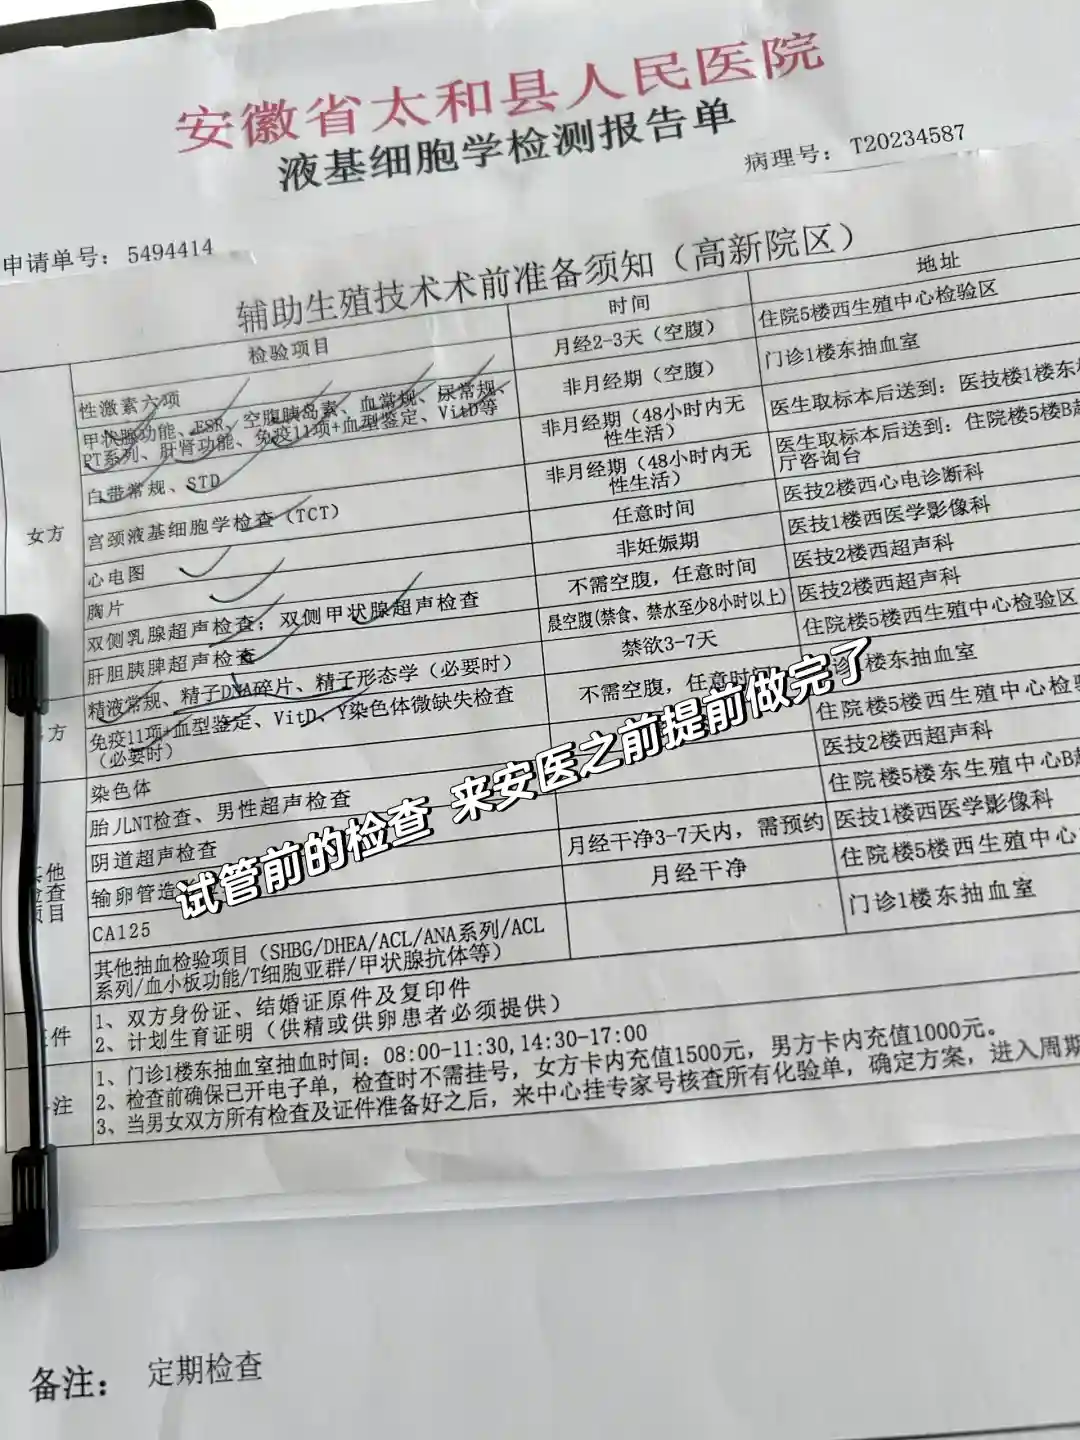 安徽省太和县人民医院
液基细胞学检测报告单
病理号：T20234587
申请单号：5494414
辅助生殖技术术前准备须知（高新院区）
检验项目
时间
地址
女方
性激素六项
月经2-3天（空腹）
住院5楼西生殖中心检验区
甲状腺功能、ESR、空腹胰岛素、血常规、尿常规、
PT系列、肝肾功能、免疫11项+血型鉴定、VitD等
非月经期（空腹）
门诊1楼东抽血室
白带常规、STD
非月经期（48小时内无
性生活）
医生取标本后送到：医技楼1楼东
宫颈液基细胞学检查（TCT）
非月经期（48小时内无
性生活）
医生取标本后送到：住院楼5楼B
厅咨询台
心电图
任意时间
医技2楼西心电诊断科
胸片
非妊娠期
医技1楼西医学影像科
双侧乳腺超声检查；双侧甲状腺超声检查
不需空腹，任意时间
医技2楼西超声科
肝胆胰脾超声检查
晨空腹(禁食、禁水至少8小时以上)
医技2楼西超声科
方
精液常规、精子DNA碎片、精子形态学（必要时）
禁欲3-7天
住院楼5楼西生殖中心检验区
免疫11项+血型鉴定、VitD、Y染色体微缺失检查
（必要时）
不需空腹，任意时间
楼东抽血室
其他
检查
项目
染色体
住院楼5楼西生殖中心检验
胎儿NT检查、男性超声检查
医技2楼西超声科
阴道超声检查
住院楼5楼东生殖中心B超
输卵管造
月经干净3-7天内，需预约
医技1楼西医学影像科
CA125
月经干净
住院楼5楼西生殖中心
其他抽血检验项目（SHBG/DHEA/ACL/ANA系列/ACL
系列/血小板功能/T细胞亚群/甲状腺抗体等）
门诊1楼东抽血室
件
1、双方身份证、结婚证原件及复印件
2、计划生育证明（供精或供卵患者必须提供）
注
1、门诊1楼东抽血室抽血时间：08:00-11:30,14:30-17:00
2、检查前确保已开电子单，检查时不需挂号，女方卡内充值1500元，男方卡内充值1000元。
3、当男女双方所有检查及证件准备好之后，来中心挂专家号核查所有化验单，确定方案，进入周期
试管前的检查 来安医之前提前做完了
备注：定期检查